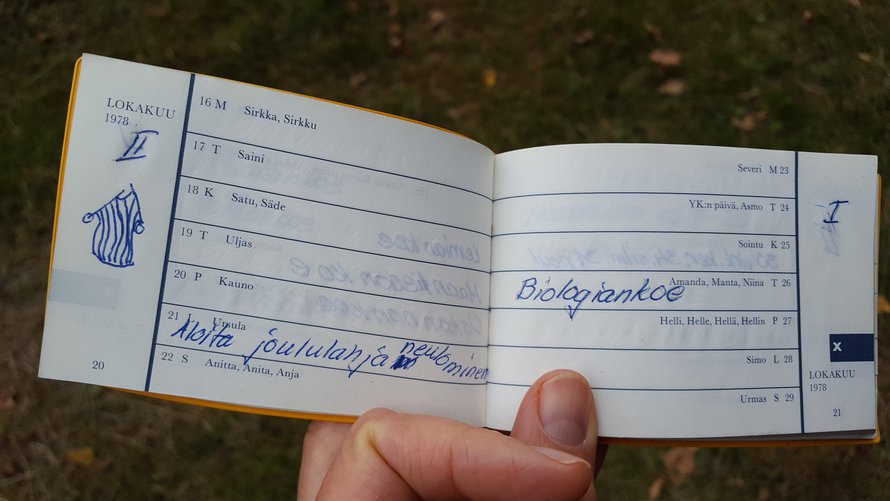 LOKAKUU
1978
II
16 M Sirkka, Sirkku
17 T Saini
18 K Satu, Säde
19 T Uljas
20 P Kauno
21 L Ursula
Aloita joululahja neulominen
22 S Anitta, Anita, Anja
20
Severi M 23
YK:n päivä, Asmo T 24
Sointu K 25
Amanda, Manta, Niina T 26
Biologiankoe
Helli, Helle, Hellä, Hellin P 27
Simo L 28
Urmas S 29
I
X
LOKAKUU
1978
21